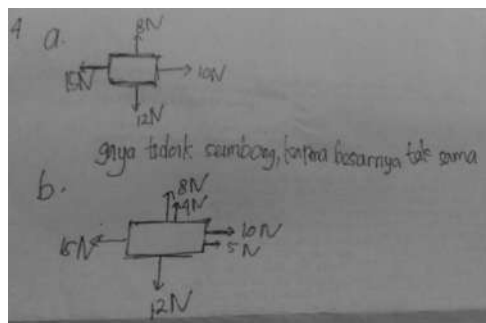 4 a.
8N
15N 10N
12N
gaya tidak seimbang, karena besarnya tak sama
b.
8N
4N
15N 10N
5N
12N